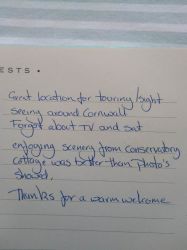 ESTS •
Great location for touring/sight
seeing around Cornwall
Forgot about TV and sat
enjoying scenery from conservatory
cottage was better than photo's
shared.
Thanks for a warm welcome